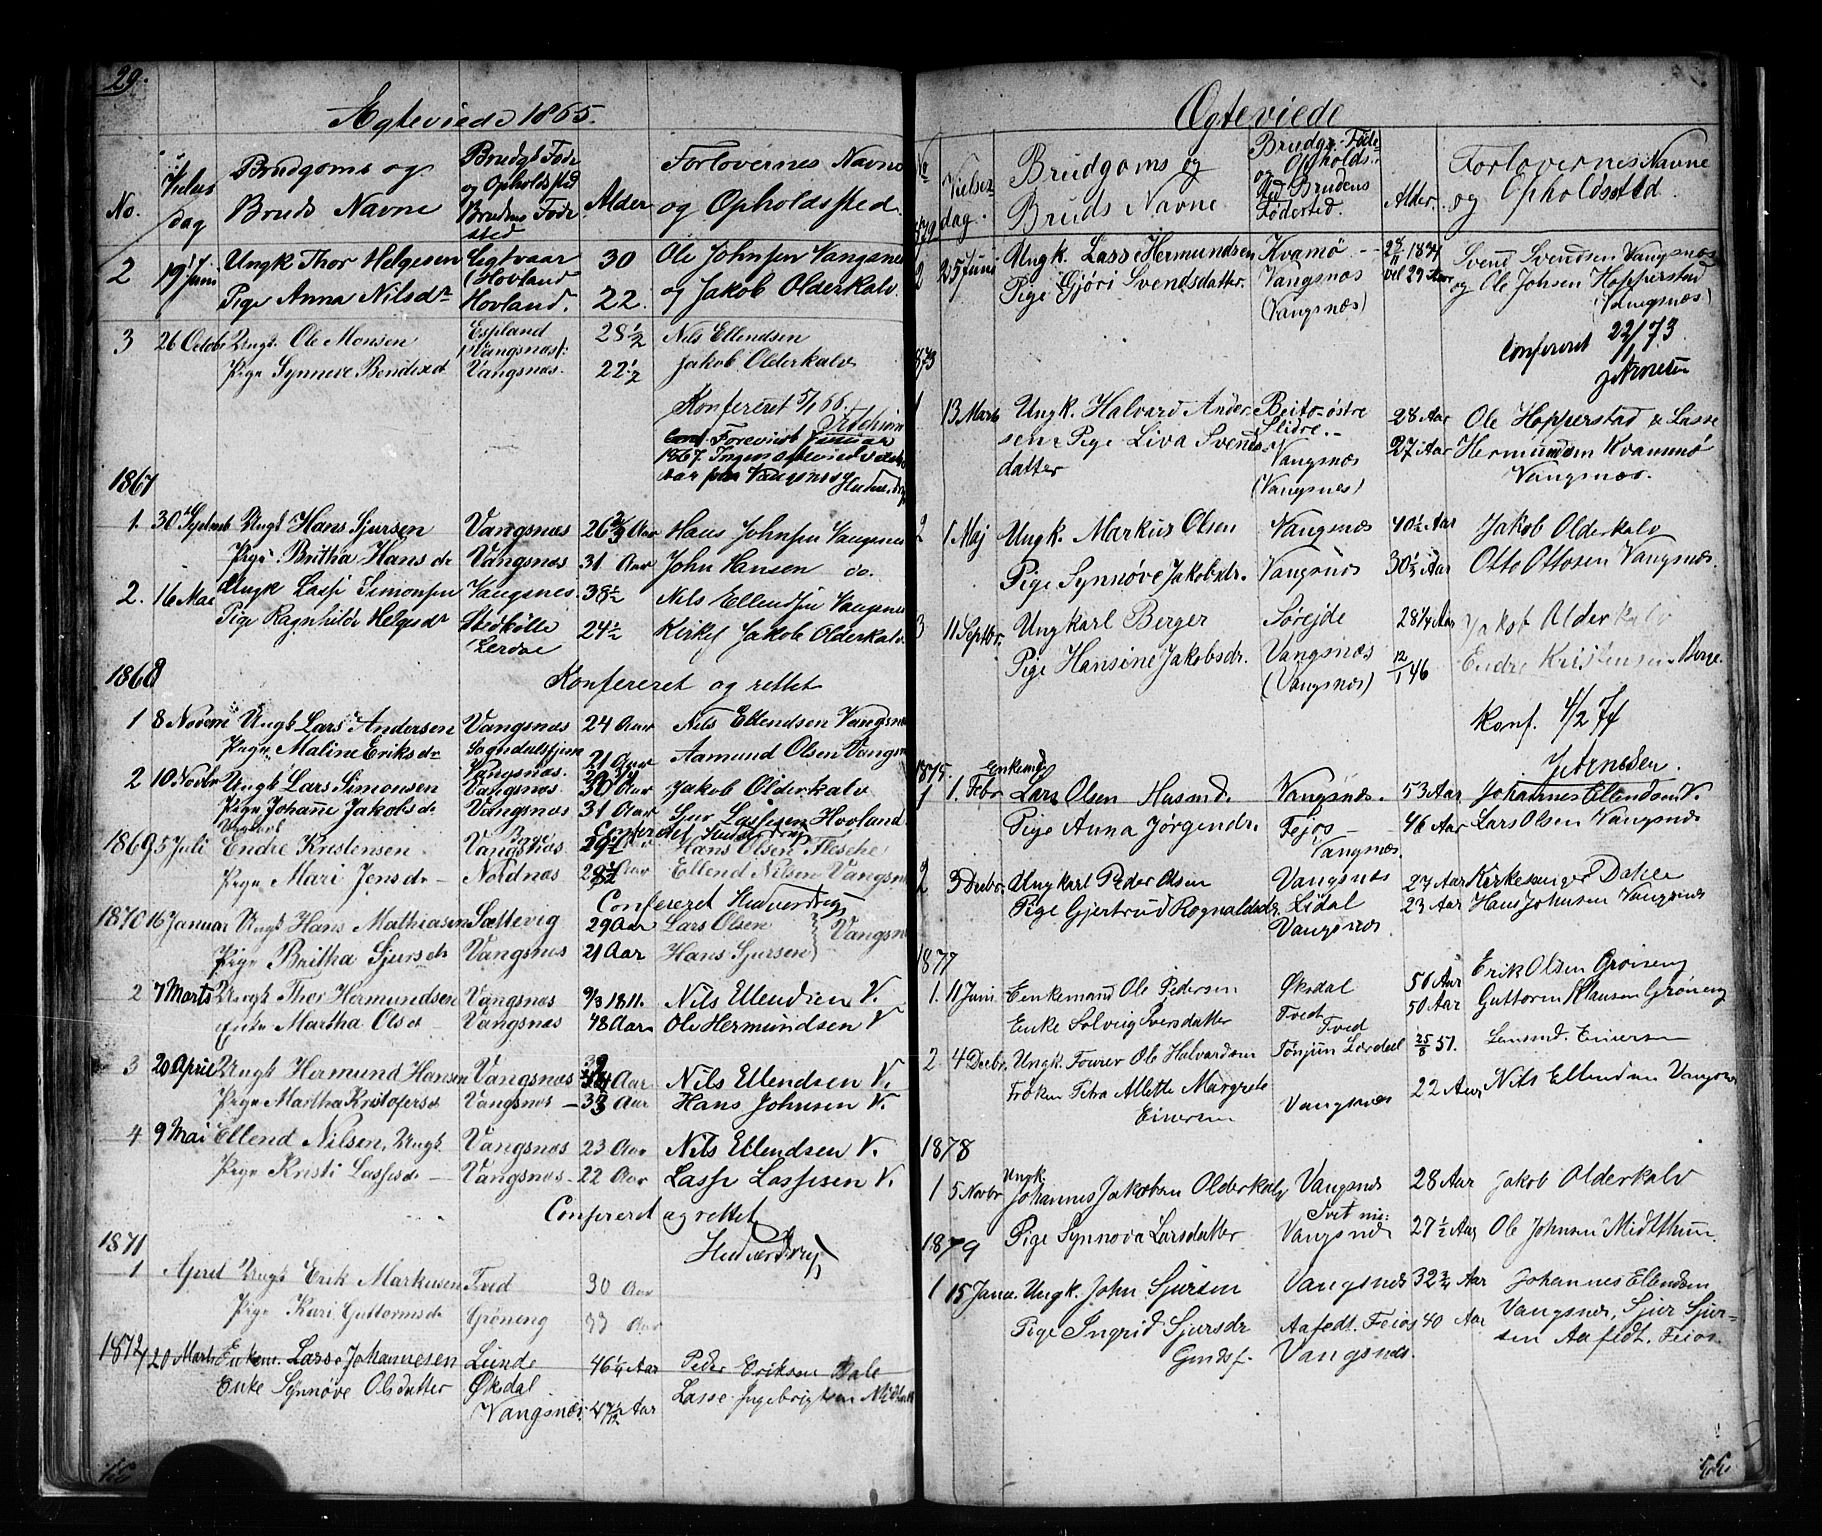 29.
Ægteviede 1865.
No.
Vielses
dag
Brudgoms og
Bruds Navne
Brudgs Føde
og Opholdssted
Brudens Føde
sted
Alder
Forlovernes Navne
og Opholdssted.
2 19 Juni Ungk Thor Helgesen Hovland 30 Ole Johnsen Vangsnes
Pige Anna Nilsdr Hovland. 22. og Jakob Olderkalv.
3 26 Octobr Ungk. Ole Monsen Espland 28 1/2 Nils Ellendsen
(Vangsnæs):
Pige Synneve Bendixd Vangsnæs. 22 1/2 Jakob Olderkalv
Konfereret 5/1 66.
1867. Ingen
1867
1. 30 Septemb Ungk Hans Sjursen Vangsnæs 26 Aar Hans Johnsen Vangsnes
Pige Britha Hansdr Vangsnæs 31 Aar John Hansen do.
2. 16 Mai Ungk Lasse Simonsen Vangsnes. 38 1/2 Nils Ellendsen Vangsnes
Pige Ragnhilde Helgesdr 24 1/2 Kirkes Jakob Olderkalv
1868 Konfereret og rettet
1 8 Novem Ungk Lars Andersen Vangsnæs 24 Aar Nils Ellendsen Vangsn
Pige Maline Eriksdr Sogndalsfjæren 21 Aar Aamund Olsen Vangsn
Vangsnæs.
2 10 Novbr Ungk Lars Simonsen Vangsnæs 30 Aar Jakob Olderkalv
Pige Johanne Jakobsdr Vangsnæs 31 Aar Sjur Lassesen Hovland
Confereret
1869 5 Juli Endre Kristensen. Vangsnæs Hans Olsen Flesche
Pige Mari Jensdr Nordnæs Aar Ellend Nilsen Vangsn
Confereret
1870 16 Januar Ungk Hans Mathiasen Sættevig 29 Aar Lars Olsen
Vangsn
Pige Britha Sjursdr Vangsnæs 21 Aar Hans Sjursen
2 7 Marts Ungk Thor Hermundsen Vangsnæs 9/3 1811. Nils Ellendsen V.
Enke Martha Olsdr Vangsnæs 48 Aar Ole Hermundsen V
3 20 April Ungk Hermund Hansen Vangsnæs Aar Nils Ellendsen V.
Pige Martha Kristofersdr Vangsnæs 33 Aar Hans Johnsen V.
4 9 Mai Ellend Nilsen, Ungk Vangsnæs 23 Aar Nils Ellendsen V.
Pige Kristi Lassesdr Vangsnæs 22 Aar Lasse Lassesen V.
Confereret og rettet
1871
1 April Ungk Erik Markusen Tved 30 Aar
Pige Kari Guttormsdr Grøneng 33 Aar
1872
1 20 Marts Enkem. Lasse Johannesen Lunde 46 1/4 Aar Peder Eriksen Dale
Enke Synnøve Olsdatter Øksdal Lasse Ingebrigtsen
Vangsnæs. 47 Aar
Ægteviede
No
Vielses
dag.
Brudgoms og
Bruds Navne
Brudgs. Føde
og Opholds
sted Brudens
Fødested.
Alder.
Forlovernes Navne
og Opholdssted
2 25 Juni Ungk. Lasse Hermundsen Kvamø 1871 Svend Svendsen Vangsnæs
Pige Gjøri Svensdatter. Vangsnæs 29 Aar og Ole Johsen Hopperstad
(Vangsnæs) (Vangsnæs)
Confereret 22/1 73
J Arnesen
1873
1 13 Marts Ungk. Halvard Ander- Beito-østre 28 Aar Ole Hopperstad & Lasse
sen Pige Liva Svens- Slidre.- 27 Aar Hermundsen Kvammø
datter Vangsnæs Vangsnæs.
(Vangsnæs)
2 1 Maj Ungk. Markus Olsen Vangsnæs 40 1/2 Aar Jakob Olderkalv
Pige Synnøve Jakobsdr. Vangsnæs 30 1/2 Aar Otto Ottosen Vangsnæs.
3 11 Septbr. Ungkarl Berger Sørejde 28 1/4 Aar Jakob Olderkalv
Pige Hansine Jakobsdr. Vangsnæs 12/1 46 Endre Kristensen
(Vangsnæs)
Konf. 4/2 74
J Arnesen.
1875. Enkemd
1 1. Febr Lars Olsen Husmd. Vangsnæs. 53 Aar Johannes Ellendsen V.
Pige Anna Jørgendr. Fejos 46 Aar Lars Olsen Vangsnæs
Vangsnæs.
2 3 Decbr. Ungkarl Peder Olsen Vangsnæs 27 Aar Kirkesanger
Pige Gjertrud Rognaldsdr. Lidal 23 Aar Hans Johnsen Vangsnes
Vangsnæs.
1877
1. 11 Juni Enkemand Ole Pedersen Øksdal 56 Aar Erik Olsen Grøneng
Tved 50 Aar Guttorm Klausen Grøneng
Enke Solveig Iversdatter Tved
2. 4 Decbr. Ungk. Fourer Ole Halvardsen Tønjum Lærdal 25/8 51. Lensmd. Einersen
Frøken Petra Alette Margrete 22 Aar Nils Ellendsen Vangsnes
Einersen Vangsnæs
1878
Ungk.
1 5 Novbr Johannes Jakobsen Olderkalv Vangsnæs 28 Aar Jakob Olderkalv
Pige Synnøva Larsdatter Vangsnæs 27 1/2 Aar Ole Johnsen Midtthun.
1879
1 15 Janu. Ungk. John Sjursen Vangsnæs 32 3/4 Aar Johannes Ellendsen
Pige Ingrid Sjursdr Aafedt. Feios 40 Aar Vangsnes, Sjur Sjur-
Vangsnæs. sen Aafedt. Feios